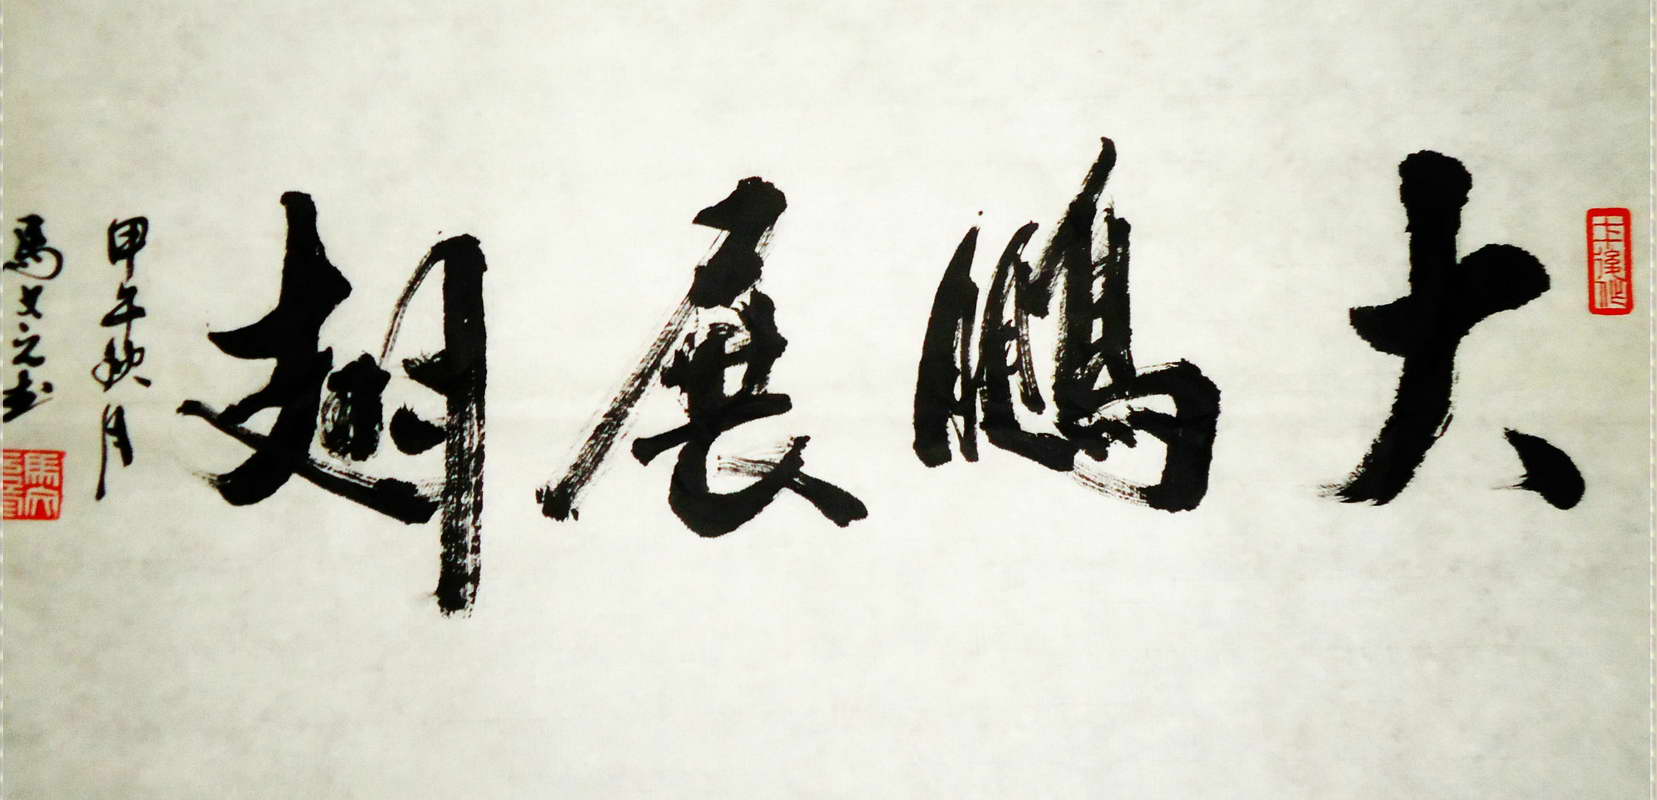 大鵬展翅
甲午秋月
馬文元书